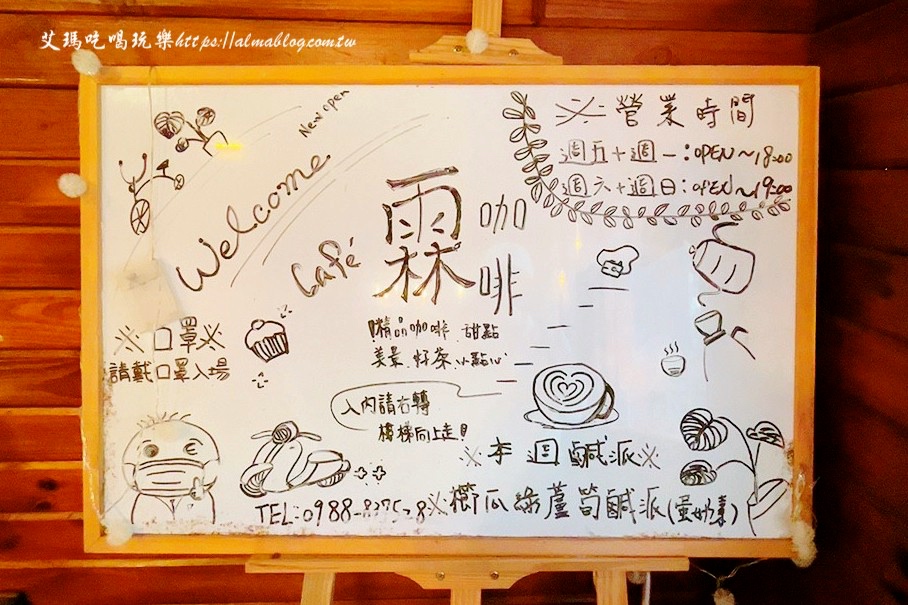 艾瑪吃喝玩樂https://almablog.com.tw
New open
Welcome
Café
霖
咖啡
※營業時間
週五+週一:OPEN~18:00
週六+週日:OPEN~19:00
精品咖啡 甜點
美景 好茶 小點心
入內請右轉
樓梯向上走!
※口罩※
請戴口罩入場
※本週鹹派※
※櫛瓜綠蘆筍鹹派(蛋奶素)
TEL:0988-